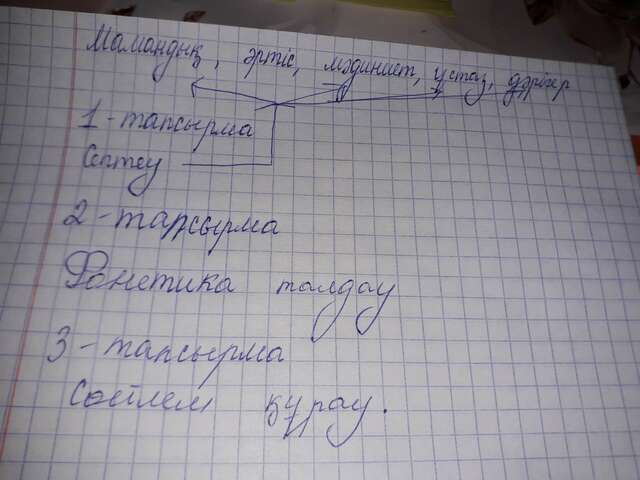 Мамандық, әртіс, мәдиниет, ұстаз, дәрігер
1-тапсырма
Септеу
2-тапсырма
Фонетика талдау
3-тапсырма
Сөйлем құрау.